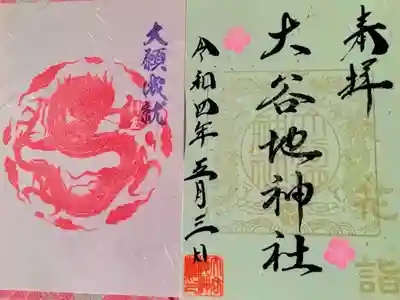 奉拝
大谷地神社
令和四年五月三日
花詣
大願成就